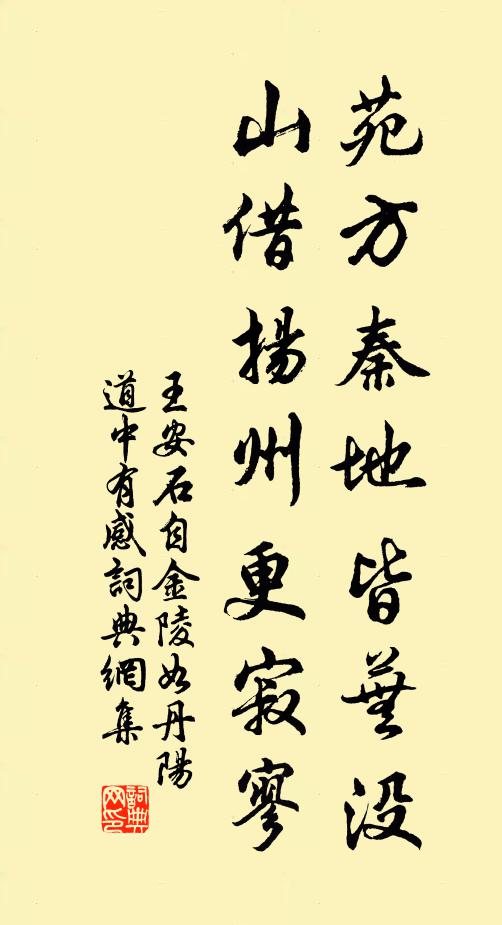 苑方秦地皆蕪没
山借揚州更寂寥
王安石自金陵如丹陽
道中有感詞典網集
詞典
网印